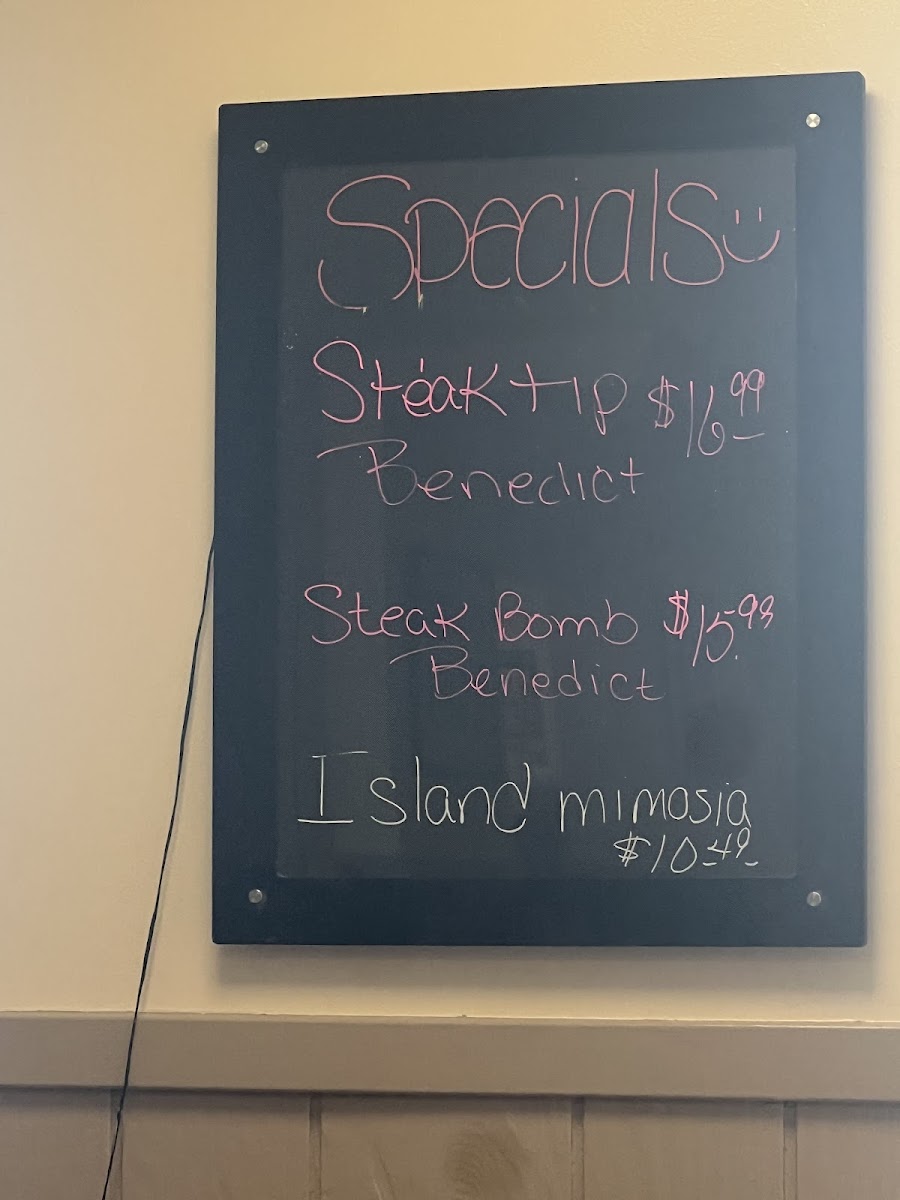 Specials :)
Steak tip $16.99
Benedict
Steak Bomb $15.99
Benedict
Island mimosia
$10.49